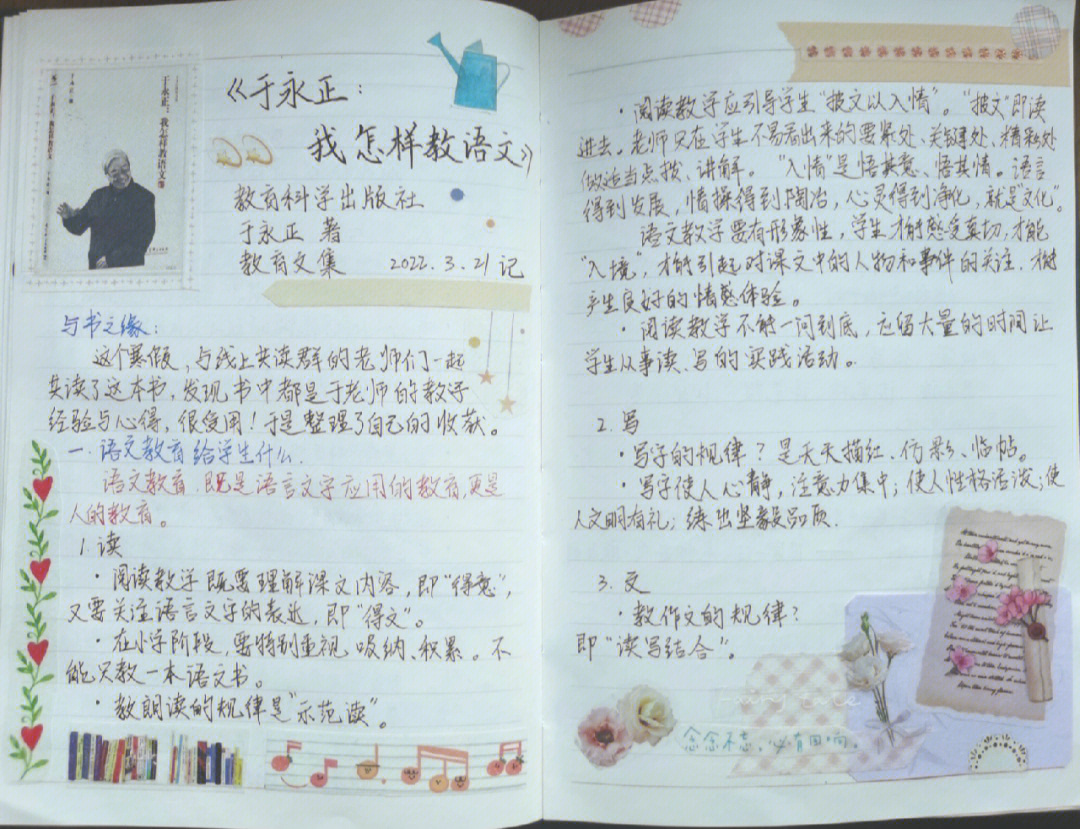 于永正：我怎样教语文
《于永正：
我怎样教语文》
教育科学出版社
于永正 著
教育文集 2022.3.21记
与书之缘：
这个寒假，与线上共读群的老师们一起
共读了这本书，发现书中都是于老师的教学
经验与心得，很受用！于是整理了自己的收获。
一.语文教育给学生什么.
语文教育.既是语言文字应用的教育,更是
人的教育。
1.读
·阅读教学既要理解课文内容，即“得意”，
又要关注语言文字的表达，即“得文”。
·在小学阶段，要特别重视吸纳、积累。不
能只教一本语文书。
·教朗读的规律是“示范读”。
·阅读教学应引导学生“披文以入情”。“披文”即读
进去。老师只在学生不易看出来的要紧处、关键处、精彩处
做适当点拨、讲解。“入情”是悟其意、悟其情。语言
得到发展，情操得到陶冶，心灵得到净化，就是“文化”。
语文教学要有形象性，学生才能感受真切,才能
“入境”，才能引起对课文中的人物和事件的关注.才能
产生良好的情感体验。
·阅读教学不能一问到底，应留大量的时间让
学生从事读、写的实践活动。
2.写
·写字的规律？是天天描红、仿影、临帖。
·写字使人心静，注意力集中；使人性格活泼；使
人文明有礼；练出坚毅品质.
3.文
·教作文的规律？
即“读写结合”。
念念不忘，必有回响。